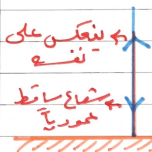 * ينعكس على
نفسه
* شعاع ساقط
عمودياً